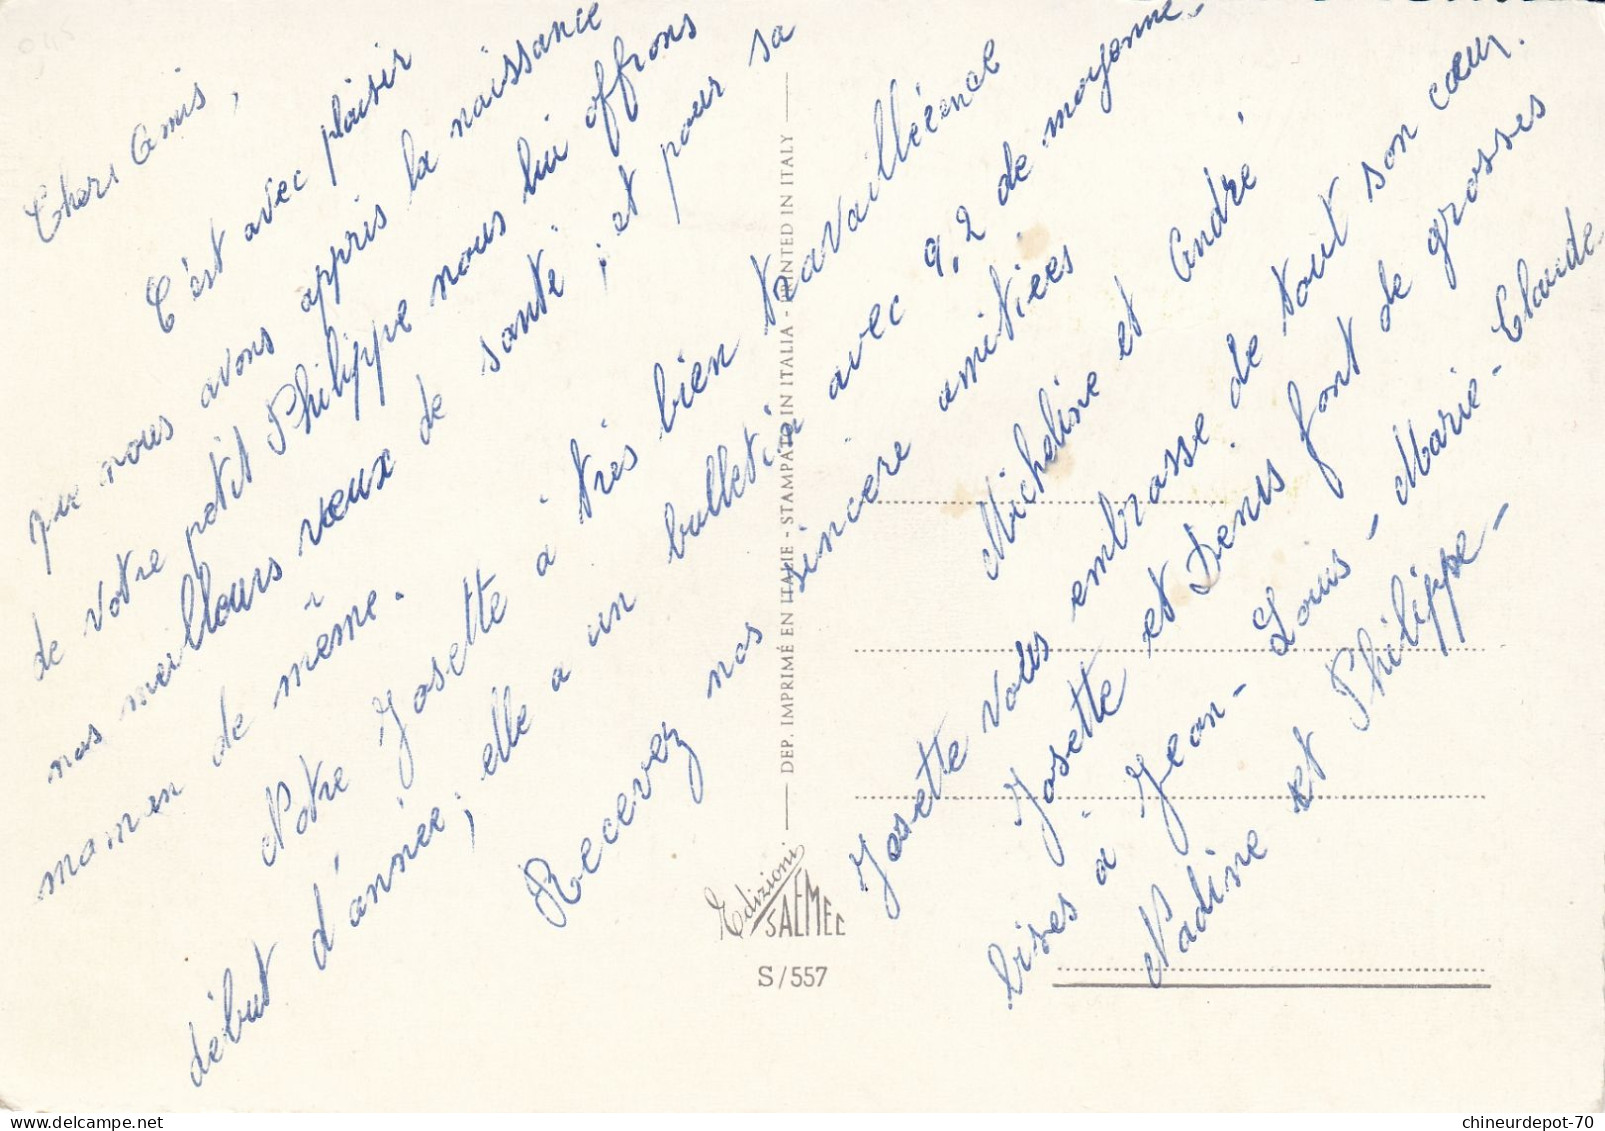 Chers Amis,
C'est avec plaisir
que nous avons appris la naissance
de votre petit Philippe nous lui offrons
nos meilleurs vœux de santé ; et pour sa
maman de même.
Notre Josette à très bien travaillé ce
début d'année ; elle a un bulletin avec 9,2 de moyenne.
Recevez nos sincere amitiees
Micheline et André
Josette vous embrasse de tout son cœur.
Josette et Denis font de grosses
bises à Jean-Louis - Marie-Claude
Nadine et Philippe -
DEP. IMPRIMÉ EN ITALIE - STAMPATO IN ITALIA - PRINTED IN ITALY
Edizioni
SAEMEC
S/557
chineurdepot-70